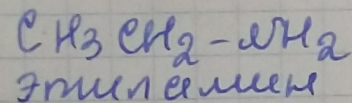 CH3CH2-NH2
этиламин